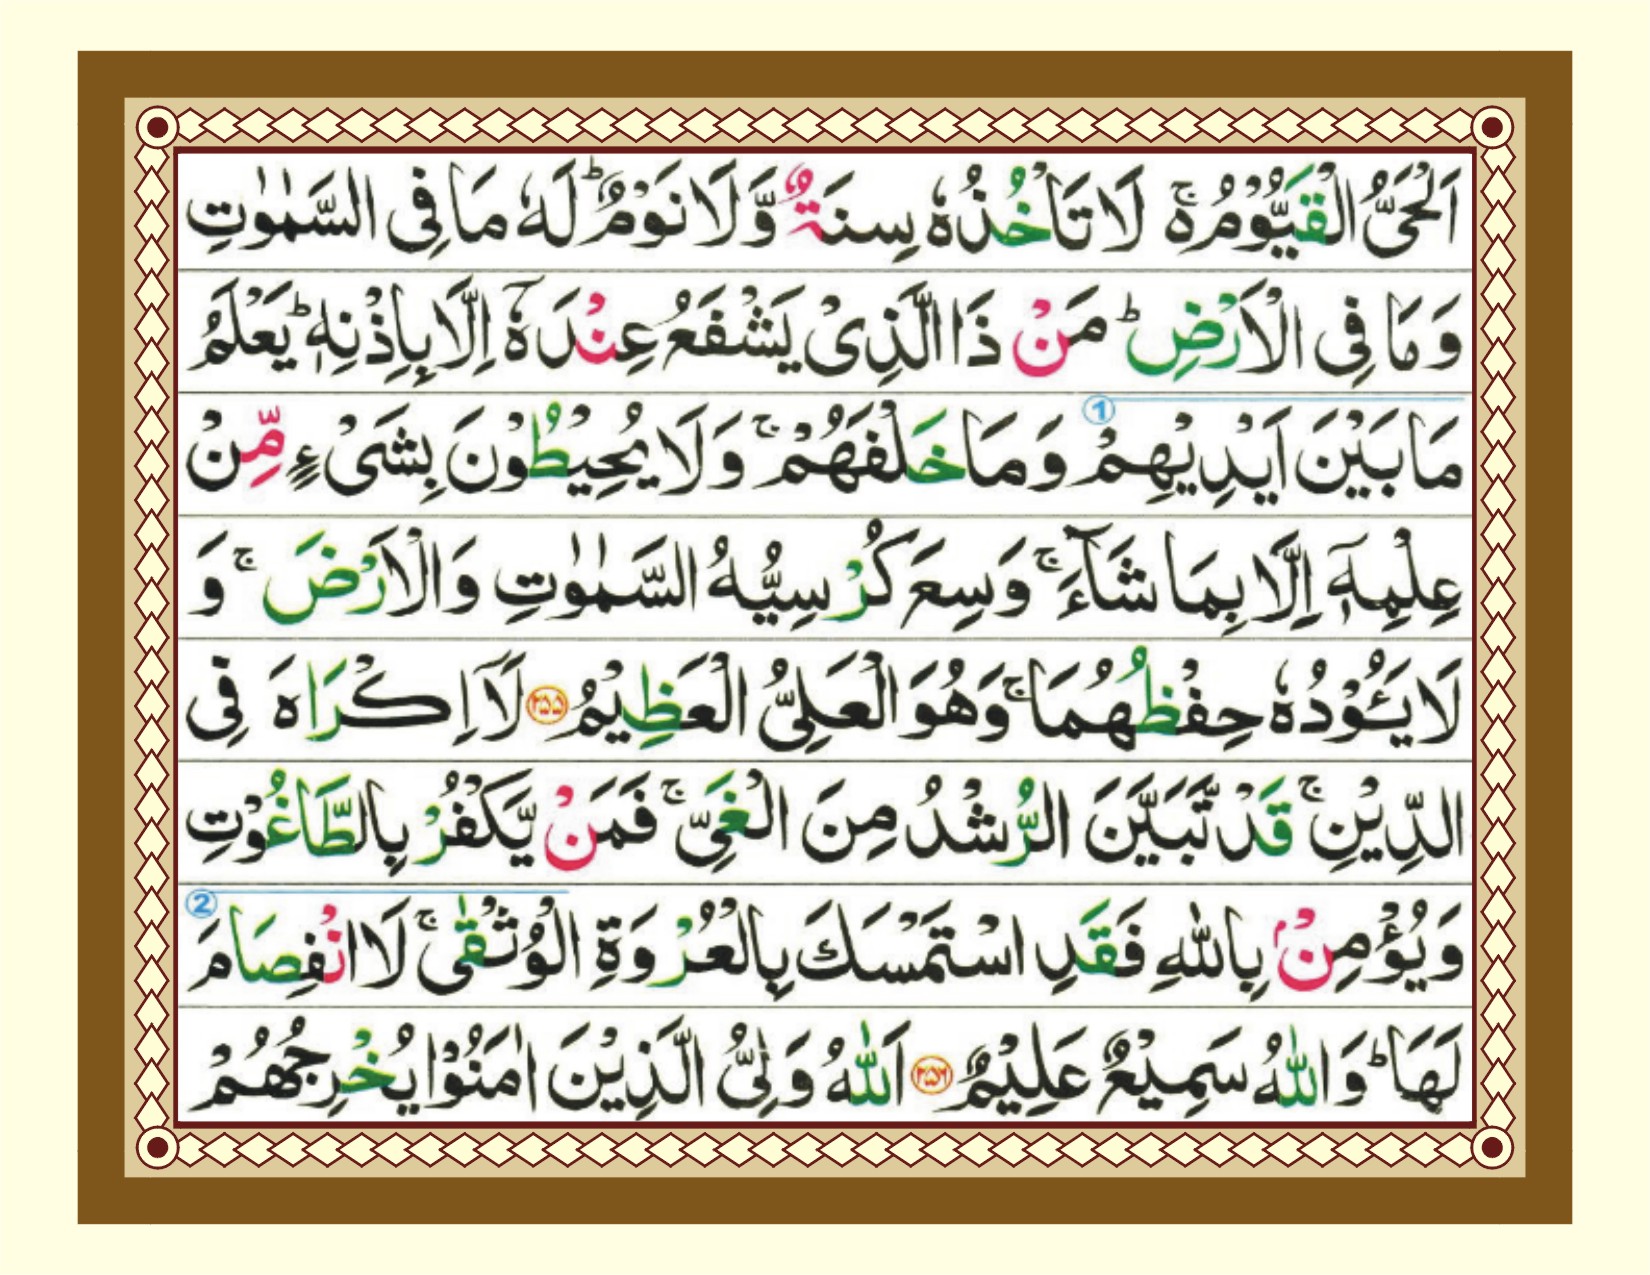 اَلْحَیُّ الْقَیُّوْمُ ۚ۬ لَا تَاْخُذُهٗ سِنَةٌ وَّلَا نَوْمٌ ؕ لَهٗ مَا فِی السَّمٰوٰتِ
وَمَا فِی الْاَرْضِ ؕ مَنْ ذَا الَّذِیْ یَشْفَعُ عِنْدَهٗۤ اِلَّا بِاِذْنِهٖ ؕ یَعْلَمُ
①
مَا بَیْنَ اَیْدِیْهِمْ وَمَا خَلْفَهُمْ ۚ وَلَا یُحِیْطُوْنَ بِشَیْءٍ مِّنْ
عِلْمِهٖۤ اِلَّا بِمَا شَآءَ ۚ وَسِعَ كُرْسِیُّهُ السَّمٰوٰتِ وَالْاَرْضَ ۚ وَ
لَا یَـُٔوْدُهٗ حِفْظُهُمَا ۚ وَهُوَ الْعَلِیُّ الْعَظِیْمُ ۲۵۵ لَاۤ اِكْرَاهَ فِی
الدِّیْنِ ۚ قَدْ تَّبَیَّنَ الرُّشْدُ مِنَ الْغَیِّ ۚ فَمَنْ یَّكْفُرْ بِالطَّاغُوْتِ
②
وَیُؤْمِنْۢ بِاللّٰهِ فَقَدِ اسْتَمْسَكَ بِالْعُرْوَةِ الْوُثْقٰی ۚ لَا انْفِصَامَ
لَهَا ؕ وَاللّٰهُ سَمِیْعٌ عَلِیْمٌ ۲۵۶ اَللّٰهُ وَلِیُّ الَّذِیْنَ اٰمَنُوْا یُخْرِجُهُمْ